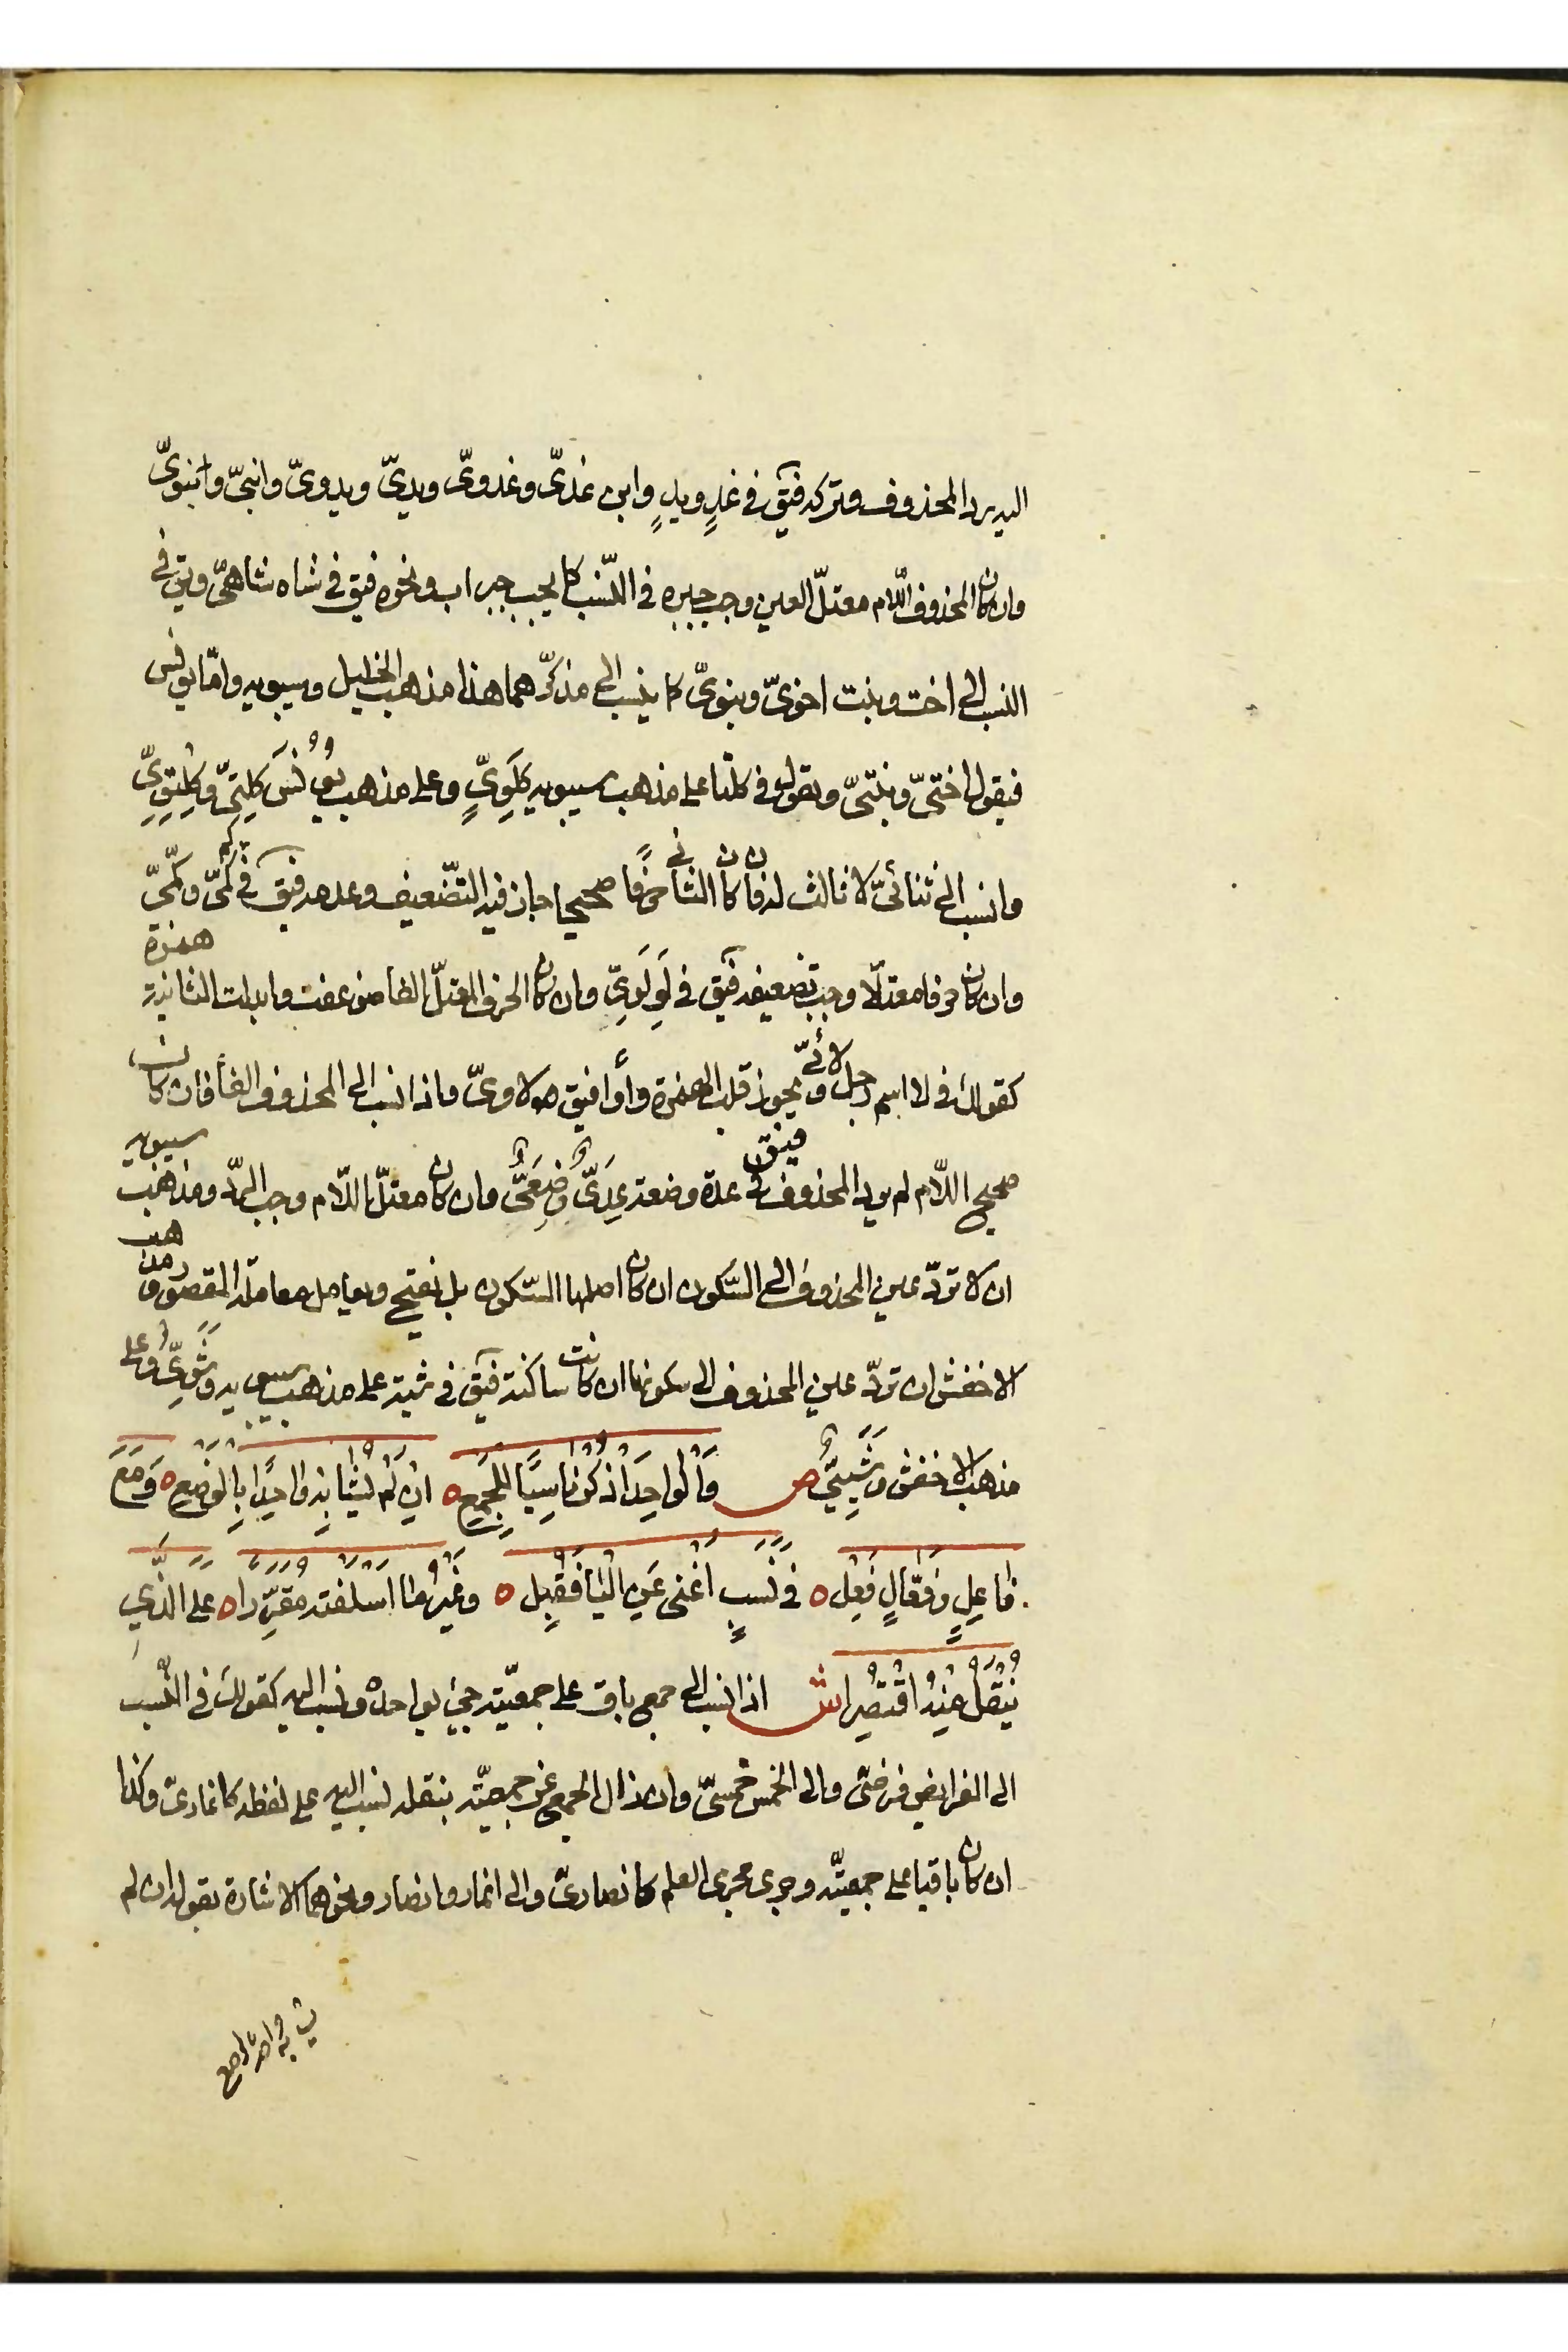 اليه يرد المحذوف وتركه فيق في غدٍ ويدٍ وابن غديّ وغدويّ ويديّ ويدويّ وابنيّ وبنويّ
وان كان المحذوف اللّام معتلّ العين وجب جبره في النّسب كما يجب جبر اب ونحوه فيق في شاه شاهيّ ويق في
النسب الى اخت وبنت اخويّ وبنويّ كما ينسب الى مذكّرهما هذا مذهب الخليل وسيبويه وامّا يونس
فيقول اختيّ وبنتيّ ويقول في كلتا على مذهب سيبويه كلَوِيّ وعلى مذهب يونُس كلتِيّ وكِلتَوِيّ
وانسب الى ثنائيّ لا ثالث له فا كان الثاني حرفًا صحيحا جاز فيه التّضعيف وعدمه فيق في كم كَمِيّ وكمّيّ
وان كان حرفا معتلّا وجب تضعيفه فيق في لَو لَوّيّ وان كان الحرف المعتلّ الفا ضوعفت وابدلت الثانية همزة
كقولك في لا اسم رجل لائيّ ويجوز قلب الهمزة واوا فيق لاويّ واذا نسب الى المحذوف الفأ فان كان
صحيح اللّام لم يرد المحذوف فيق في عدة وضعة عِدَيّ وضِعَيّ وان كان معتلّ اللّام وجب الردّ ومذهب سيبويه
ان لا تردّ عين المحذوف الى السّكون ان كان اصلها السّكون بل تفتح ويعامل معاملة المقصور ومذهب
الاخفش ان تردّ عين المحذوف الى سكونها ان كانت ساكنة فيق في شية على مذهب سيبويه وِشَوِيّ وعلى
مذهب الاخفش وِشْيِيّ ص وَالْواحِدَ اذْكُرْ ناسِبًا لِلْجَمْعِ ه انْ لَمْ يُشابِهْ واحِدًا بِالْوَضْعِ ه وَمَعَ
فاعِلٍ وَفَعّالٍ فَعِلْ ه في نَسَبٍ اغْنى عَنِ الْيَا فَقُبِلْ ه وغَيْرُ ما اسْلَفْتُه مُقَرَّرا ه علَى الّذي
يُنْقَلُ مِنْهُ اقْتُصِرا ش اذا نسب الى جمع باق على جمعيّته جيئ بواحده ونسب اليه كقولك في النّسب
الى الفرايض فرضيّ والى الخمس خمسيّ وان زال الجمع عن جمعيّته بنقله نسب اليه على لفظه كانماريّ وكذا
ان كان باقيا على جمعيّته وجرى مجرى العلم كانصاريّ والى انمار وانصار ونحوهما الاشارة بقوله ان لم
يشابه واحدا بالوضع